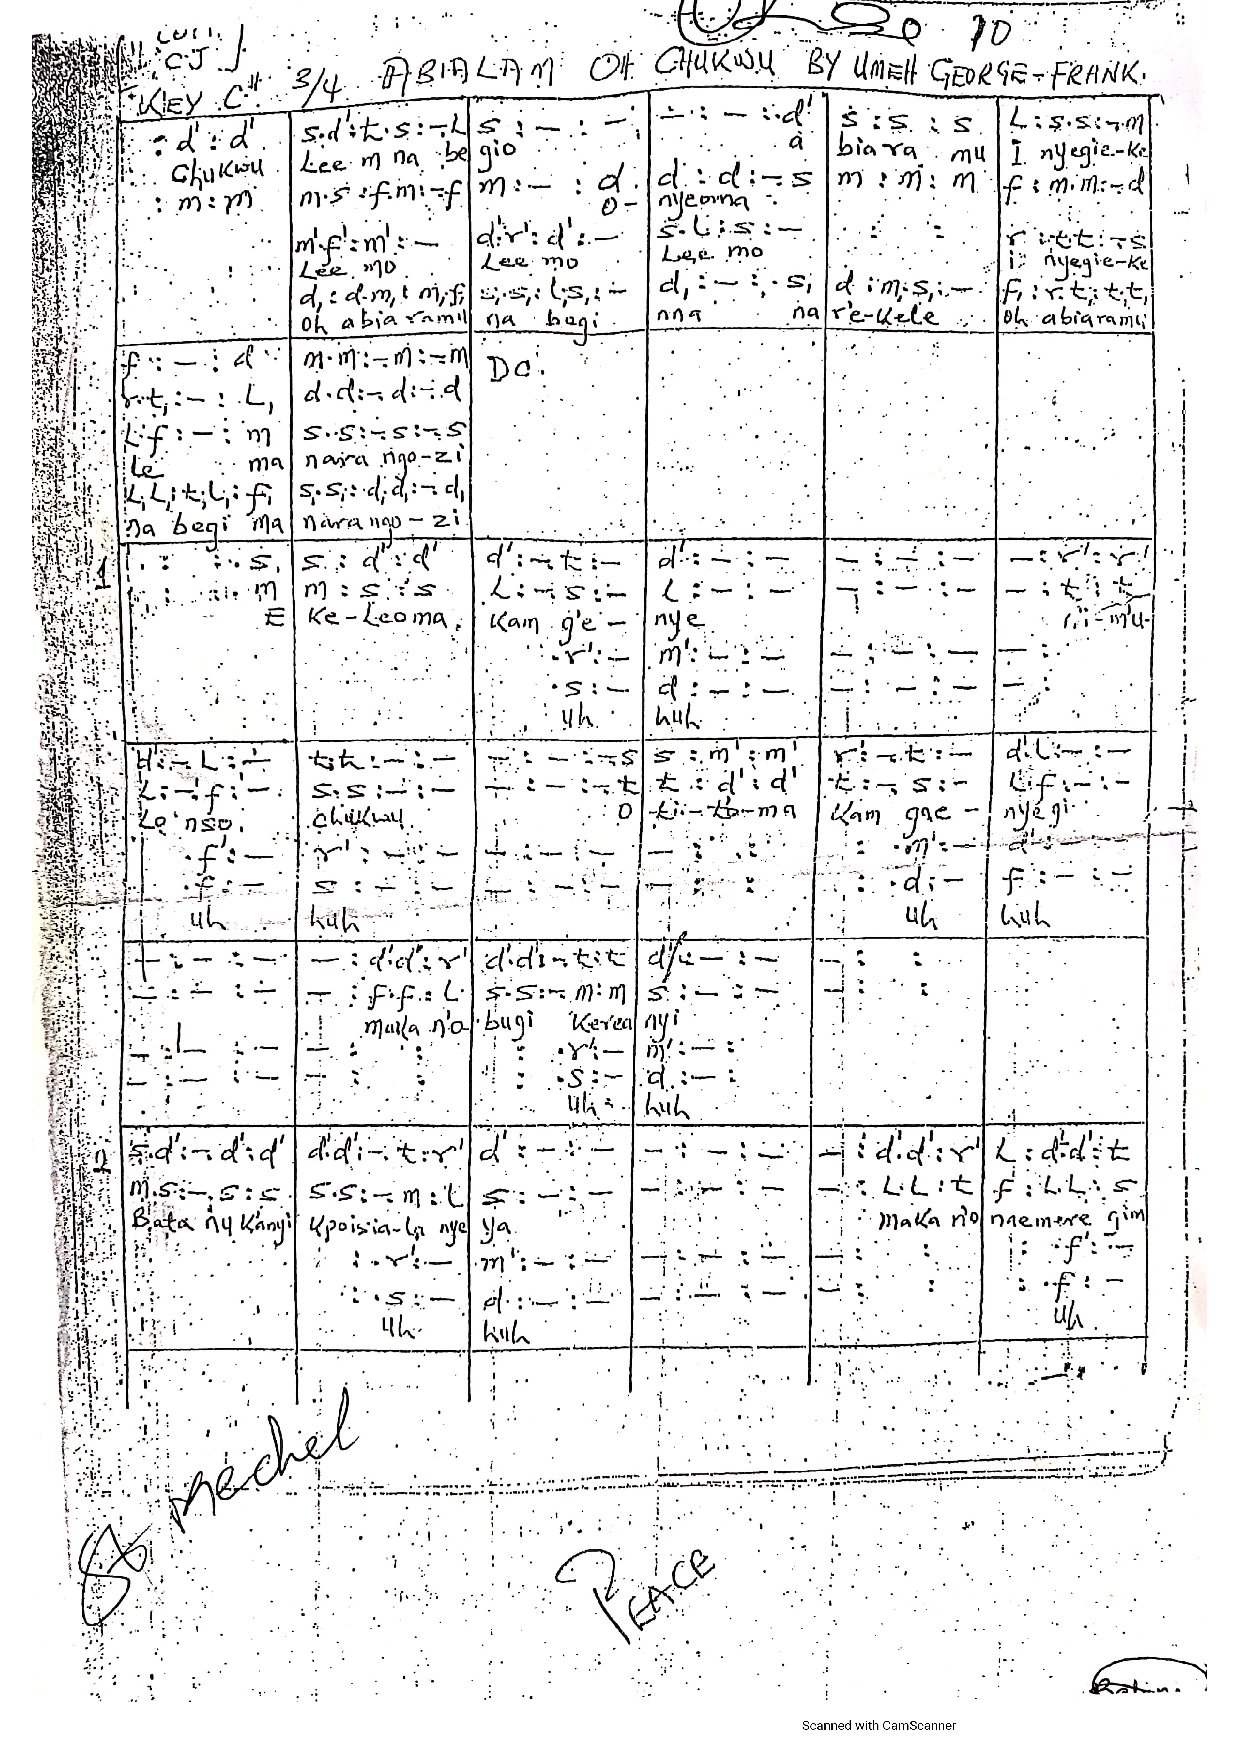 10
CJ
KEY C# 3/4 ABIALAM OH CHUKWU BY UMEH GEORGE-FRANK.
: d' : d' | s.d':t.s:-.L | s : - : - | - : - : .d' | s : s : s | L:s.s:-.m
Chukwu | Lee m na be | gio | a | biara mu | I nyegie-ke
: m : m | m.s:f.m:-.f | m : - : d | d : d : -.s | m : m : m | f:m.m:-.d
O- | nyeoma
m'.f':m':- | d'.r':d':- | s.L:s:- | : : | r:t.t:-.s
Lee mo | Lee mo | Lee mo | i nyegie-ke
d,:d.m,:m,f, | s,.s,:l,s,:- | d,:-:.s, | d:m,.s,:- | f,:r.t,:t,.t,
Oh abiaramu | na begi | nna na | re-kele | Oh abiaramu
f : - : d | m.m:-.m:-.m | DC.
r.t,:-:L, | d.d:-.d:-.d
L.f:-:m | s.s:-.s:-.s
le ma | nara ngo-zi
L,L,:t,L,:f, | s,.s,:d,d,:-.d,
na begi ma | nara ngo-zi
1 : : .s | s : d' : d' | d':-.t:- | d':-:- | -:-:- | -:r':r'
: : .m | m : s : s | L:-.s:- | L:-:- | -:-:- | -:t:t
E | Ke-leoma | Kam ge- | nye
.r':- | m':-:- | -:-:- | -:
.s:- | d:-:- | -:-:- | -:
uh | huh
d':-.L:- | t.t:-:- | -:-:-.s | s:m':m' | r':-.t:- | d'.L:-:-
L:-.f:- | s.s:-:- | -:-:-.t | t:d':d' | t:-.s:- | L.f:-:-
Le nso | Chukwu | O | ti-to-ma | Kam gae- | nyegi
.f':- | r':-:- | -:-:- | -: : | : .m':- | d':-
.f:- | s:-:- | -:-:- | -: : | : .d:- | f:-:-
uh | huh | uh | huh
-:-:- | -:d'.d':r' | d'.d':-.t:t | d':-:- | -: :
-:-:- | -:f.f:L | s.s:-.m:m | s:-:- | -: :
maka n'o | bugi Kerea | nyi
-:-:- | -: : | : .r':- | m':-:
-:-:- | -: : | : .s:- | d:-:
uh | huh
2 s.d':-.d':d' | d'.d':-.t:r' | d':-:- | -:-:- | -:d'.d':r' | L:d'.d':t
m.s:-.s:s | s.s:-.m:L | s:-:- | -:-:- | -:L.L:t | f:L.L:s
Bata nu Kanyi | Kpoisia-la nye | ya | maka n'o | naemere gim
: .r':- | m':-:- | -:-:- | -: : | : .f':-
: .s:- | d:-:- | -:-:- | -: : | : .f:-
uh | huh | uh
St Mechel
PEACE
Scanned with CamScanner